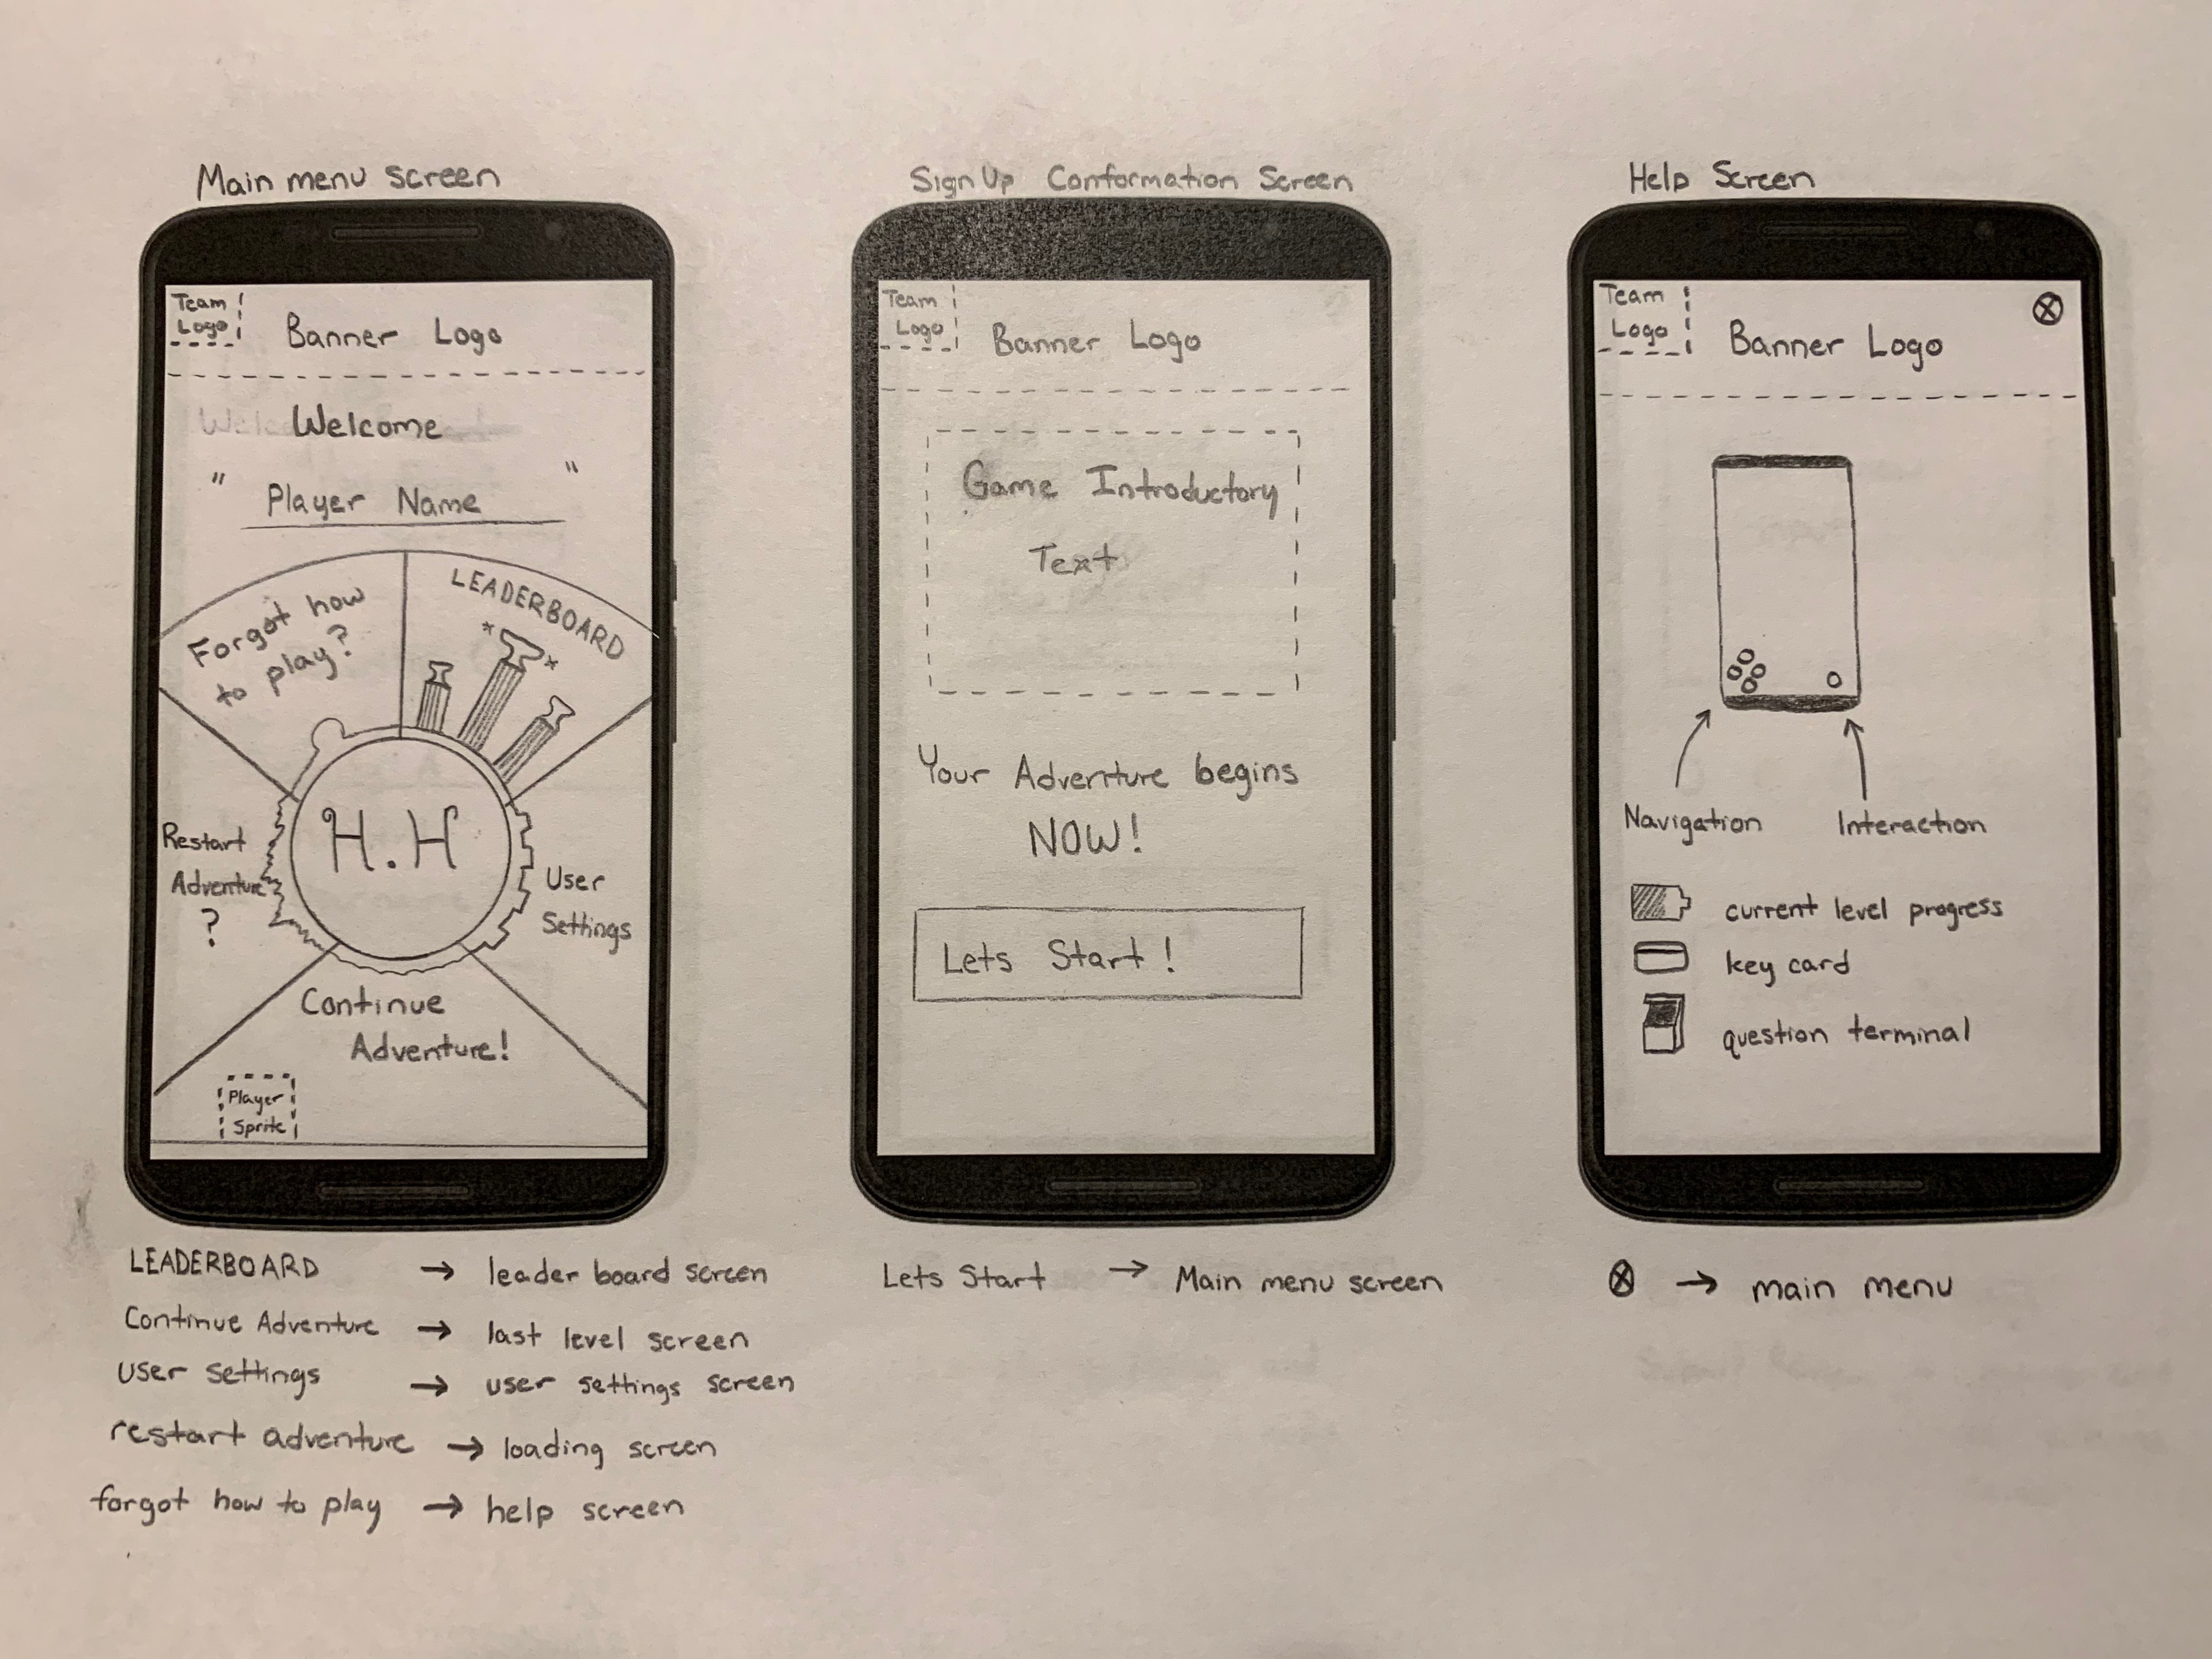 Main menu screen
Team
Logo
Banner Logo
Welcome
" Player Name "
Forgot how
to play?
LEADERBOARD
H.H
Restart
Adventure
?
User
Settings
Continue
Adventure!
Player
Sprite
LEADERBOARD → leader board screen
Continue Adventure → last level screen
user settings → user settings screen
restart adventure → loading screen
forgot how to play → help screen
Sign Up Conformation Screen
Team
Logo
Banner Logo
Game Introductory
Text
Your Adventure begins
NOW!
Lets Start!
Lets Start → Main menu screen
Help Screen
Team
Logo
Banner Logo
Navigation
Interaction
current level progress
key card
question terminal
ⓧ → main menu